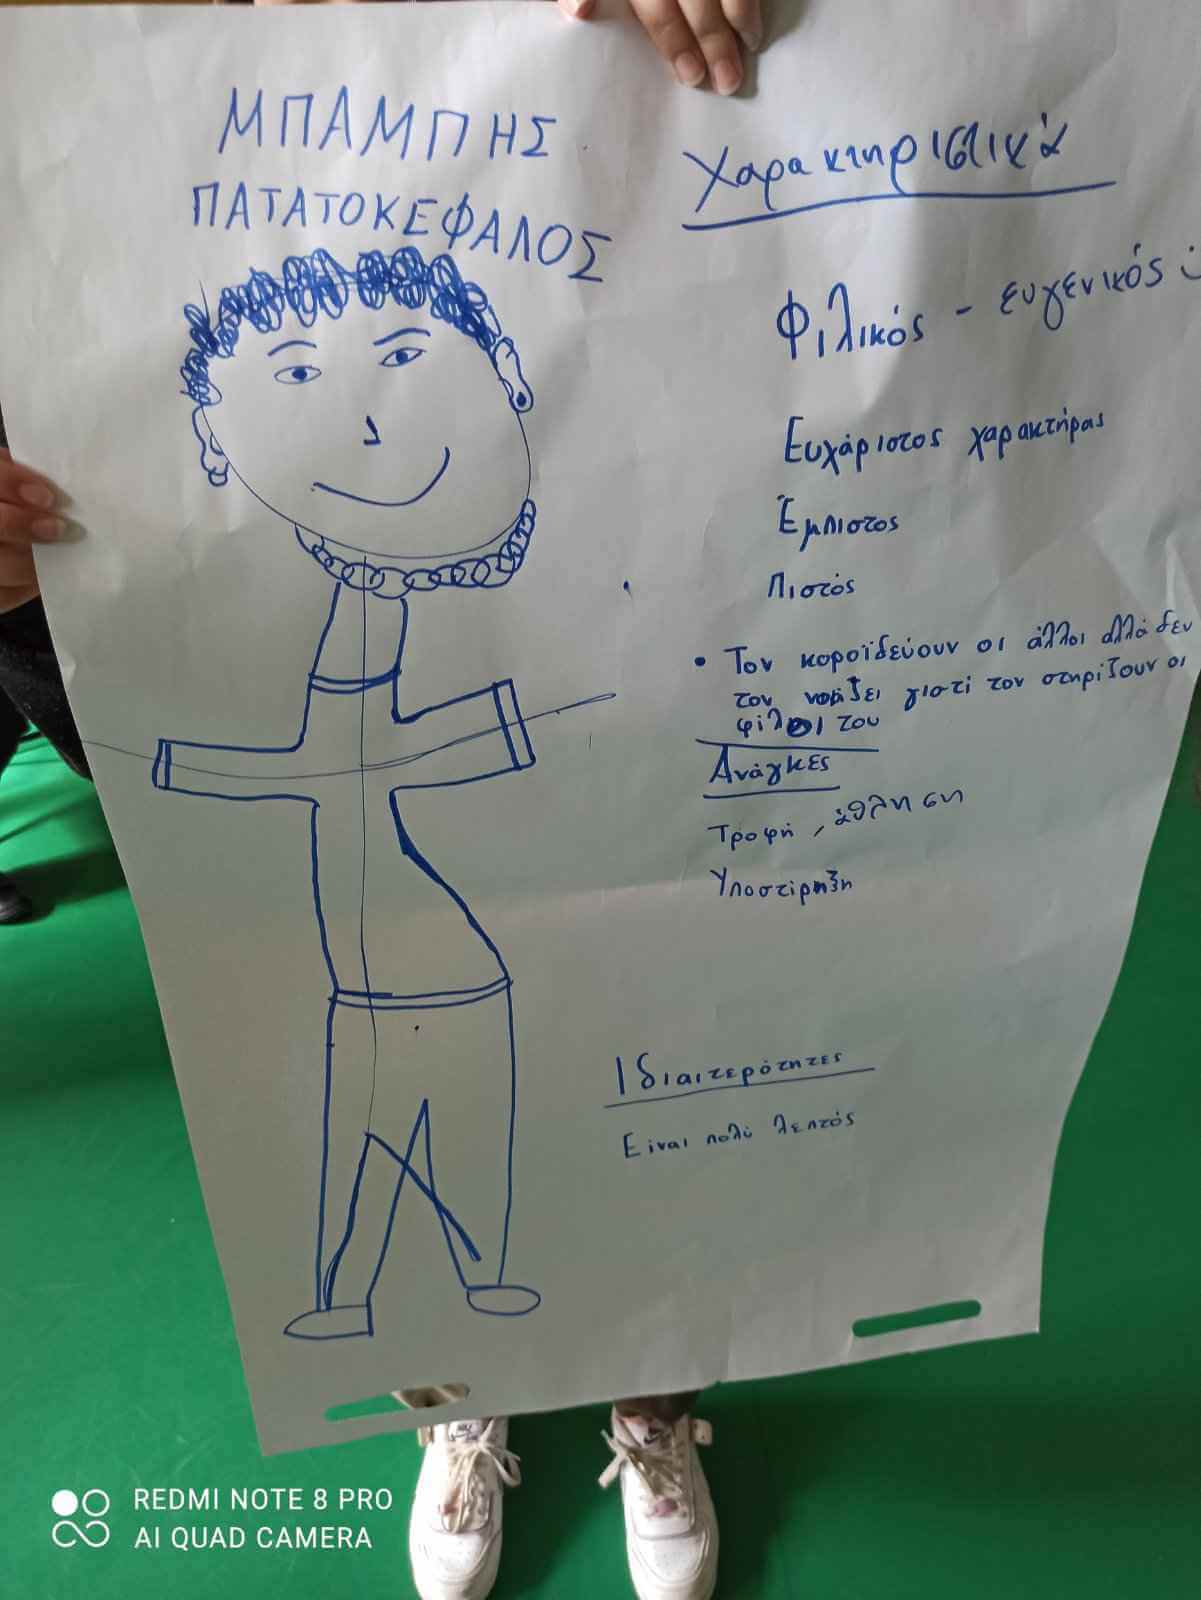 ΜΠΑΜΠΗΣ
ΠΑΤΑΤΟΚΕΦΑΛΟΣ
Χαρακτηριστικά
Φιλικός - ευγενικός
Ευχάριστος χαρακτήρας
Έμπιστος
Πιστός
• Τον κοροϊδεύουν οι άλλοι αλλά δεν
τον νοιάζει γιατί τον στηρίζουν οι
φίλοι του
Ανάγκες
Τροφή, άθληση
Υποστίρηξη
Ιδιαιτερότητες
Είναι πολύ λεπτός
REDMI NOTE 8 PRO
AI QUAD CAMERA